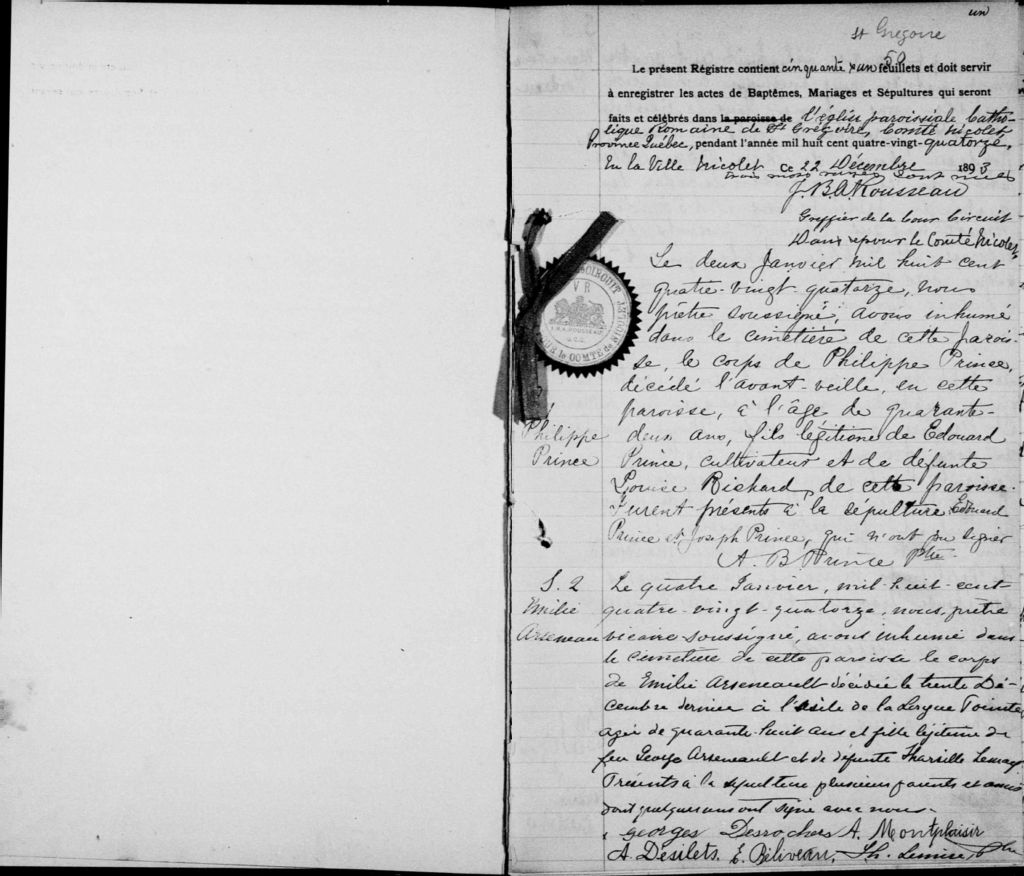 un
St Gregoire
50
Le présent Régistre contient cinquante & un feuillets et doit servir
à enregistrer les actes de Baptêmes, Mariages et Sépultures qui seront
faits et célébrés dans la paroisse de l'église paroissiale Catho-
lique Romaine de St Grégoire, Comté Nicolet
Province Québec, pendant l'année mil huit cent quatre-vingt-quatorze.
En la Ville Nicolet Ce 22 Décembre 1893
trois mots rayés sont nuls
J. B. A. Rousseau
Greffier de la Cour Circuit
Dans & pour le Comté Nicolet
CIRCUIT
V R
POUR le COMTÉ de NICOLET
Philippe
Prince
Le deux Janvier mil huit cent
quatre-vingt-quatorze, nous
prêtre soussigné, avons inhumé
dans le cimetière de cette parois-
se, le corps de Philippe Prince,
décédé l'avant-veille, en cette
paroisse, à l'âge de quarante-
deux ans, fils légitime de Edouard
Prince, cultivateur et de défunte
Louise Richard, de cette paroisse.
Furent présents à la sépulture Edouard
Prince et Joseph Prince, qui n'ont pu signer
A. B. Prince Ptre
S. 2
Emilie
Arseneau
Le quatre Janvier, mil-huit-cent
quatre-vingt-quatorze, nous, prêtre
vicaire soussigné, avons inhumé dans
le cimetière de cette paroisse le corps
de Emilie Arseneault décédée le trente Dé-
cembre dernier à l'asile de la Longue Pointe
agée de quarante-huit ans et fille légitime de
feu George Arseneault et de défunte Tharsille Lemay
Présents à la sépulture plusieurs parents et amis
dont quelques uns ont signé avec nous.
Georges Desrochers A. Montplaisir
A. Désilets. E. Béliveau, Th. Lemire, Ptre